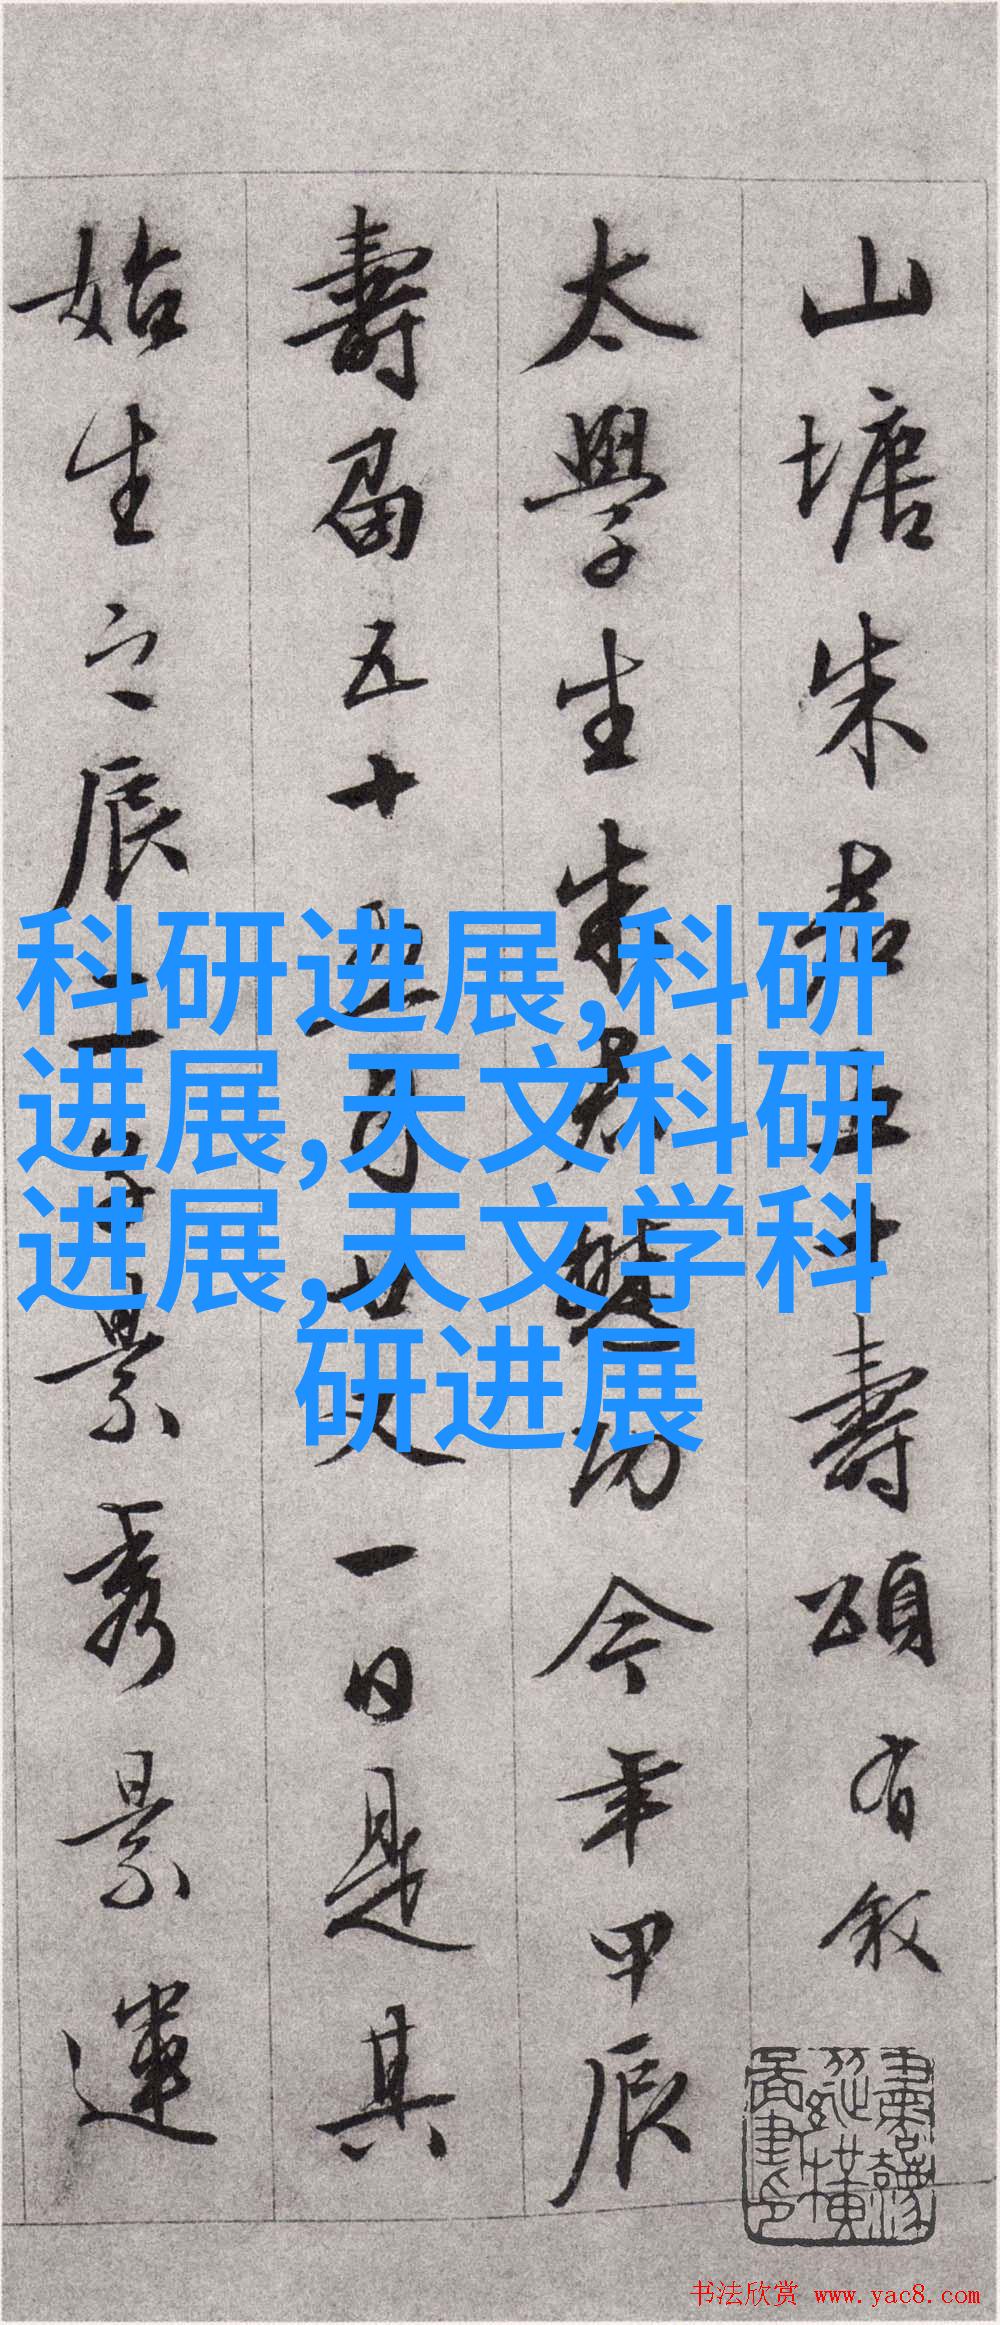 山塘朱君五十壽頌有敘
太學生朱君 今年甲辰
壽屆五十 一日是其
始生之辰 景秀景運
科研进展,科研
进展,天文科研
进展,天文学科
研进展
书法欣赏 www.yac8.com